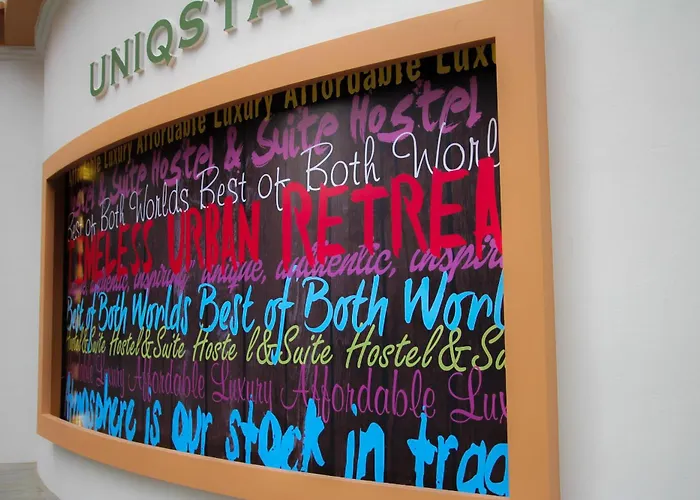 UNIQSTA
Affordable Luxury Affordable Luxury Affordable Lux
& Suite Hostel & Suite Hostel
Best of Both Worlds Best of Both Worl
ELESS URBAN RETREA
authentic, inspiring unique, authentic, inspirin
Best of Both Worlds Best of Both World
Hostel & Suite Hostel & Suite Hostel & Suite Hostel & Su
Luxury Affordable Luxury Affordable Lux
Atmosphere is our stock in trad